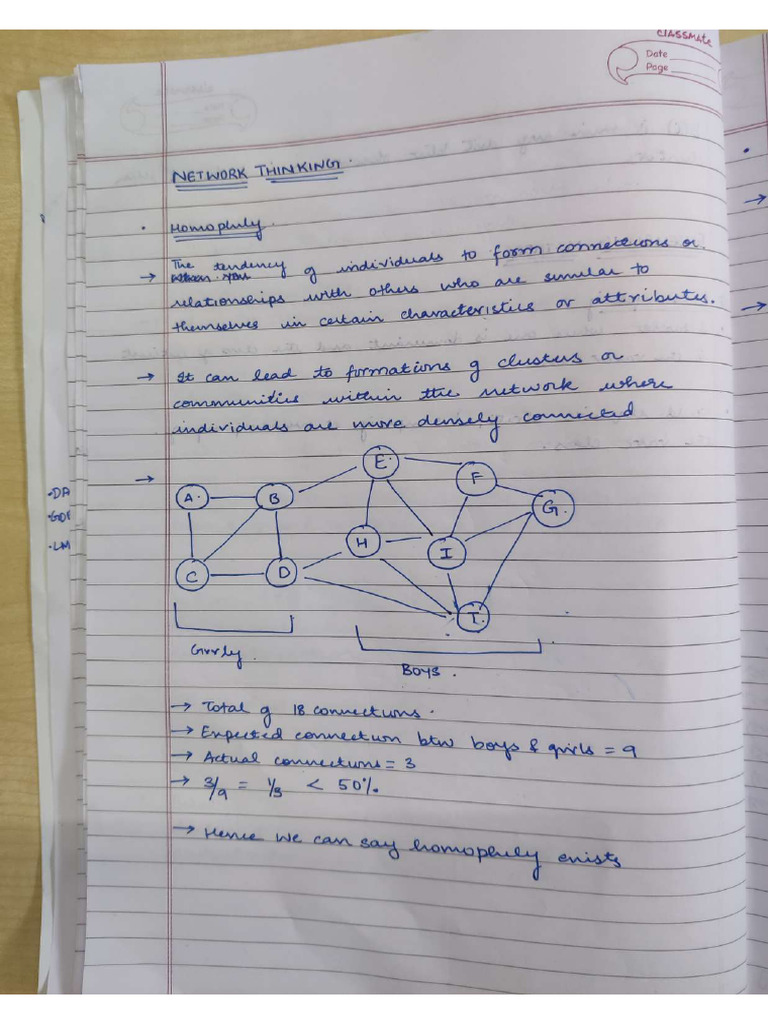 CLASSMATE
Date
Page
NETWORK THINKING.
• Homophily.
→ The tendency of individuals to form connections or
relationships with others who are similar to
themselves in certain characteristics or attributes.
→ It can lead to formations of clusters or
communities within the network where
individuals are more densely connected
→
E.
A. B F
G.
H I
C D
I.
Girls.
Boys.
→ Total of 18 connections.
→ Expected connection btw boys & girls = 9
→ Actual connections = 3
→ 3/9 = 1/3 < 50%.
→ Hence we can say homophily exists
•DA
•LM